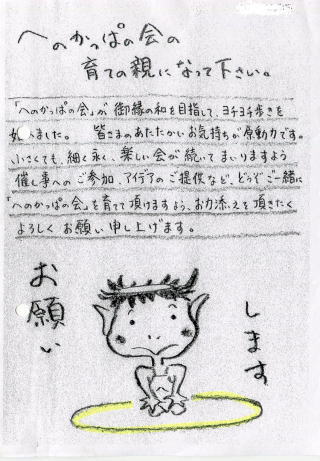 へのかっぱの会の
育ての親になって下さい。
「へのかっぱの会」が御縁の和を目指して、ヨチヨチ歩きを
始めました。 皆さまのあたたかいお気持ちが原動力です。
小さくても、細く永く、楽しい会が続いてまいりますよう
催し事へのご参加、アイデアのご提供など、どうぞご一緒に
「へのかっぱの会」を育てて頂けますよう、お力添えを頂きたく
よろしくお願い申し上げます。
お願い
します